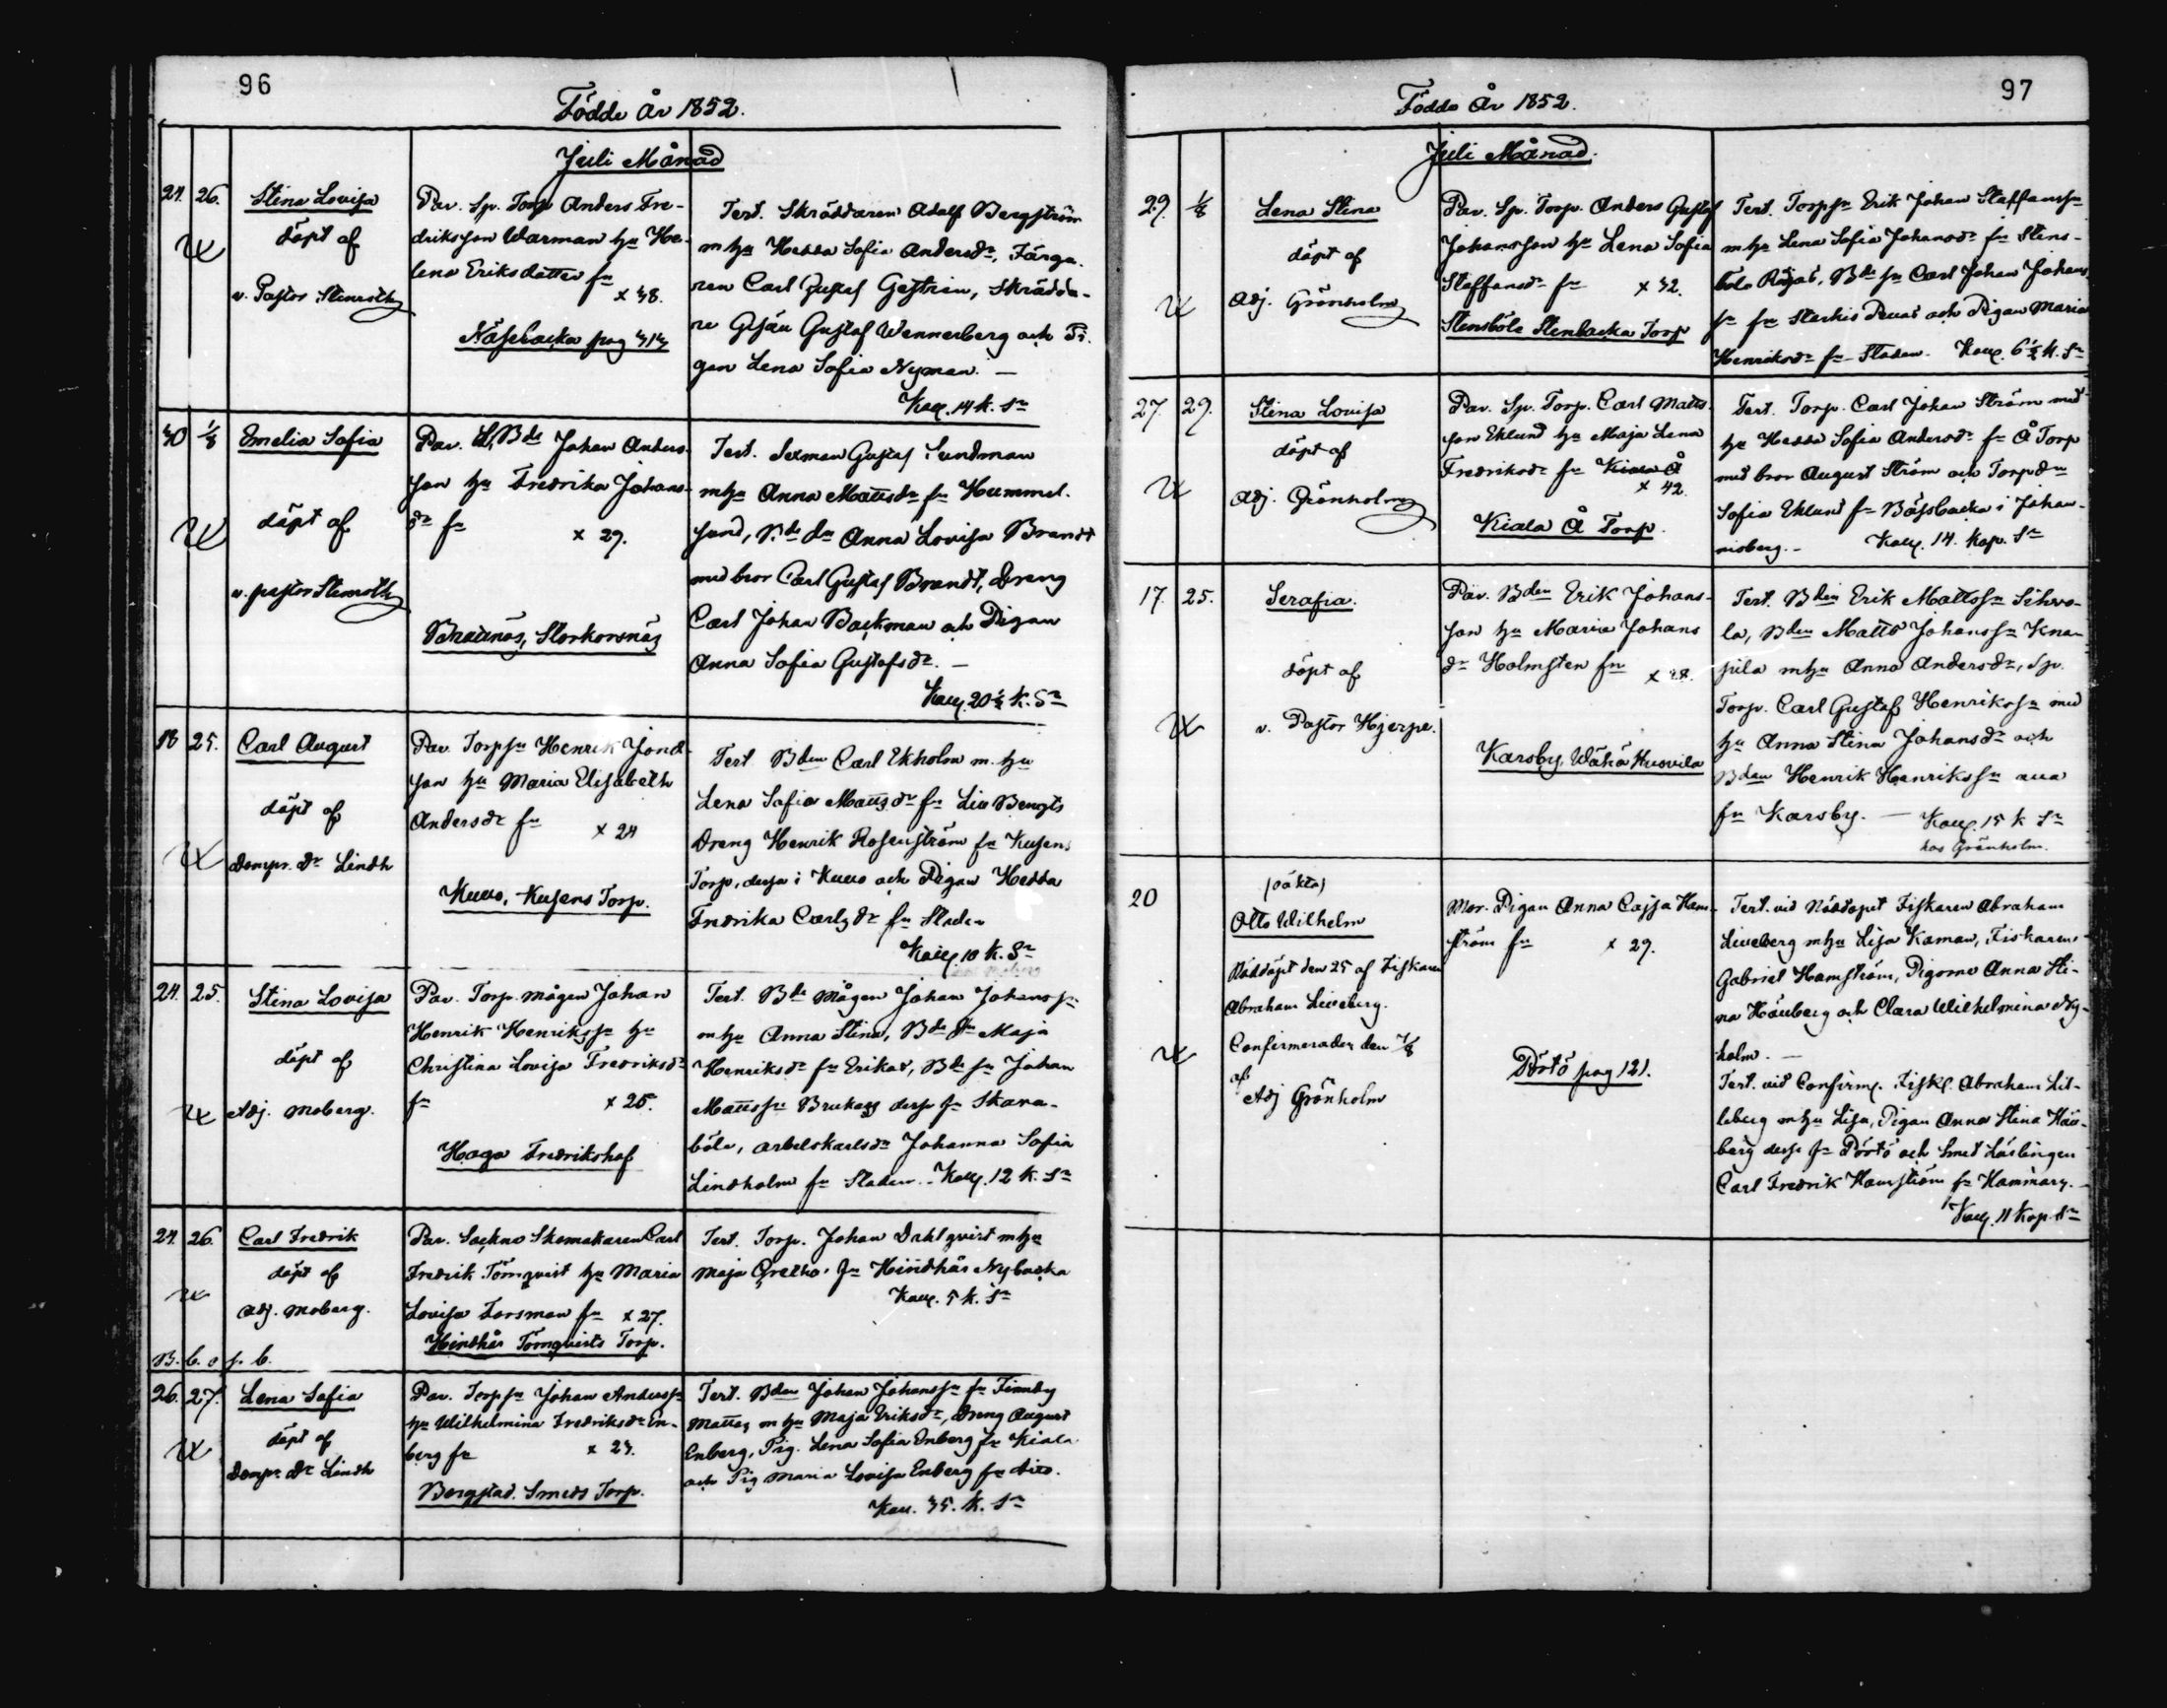 96
Födde År 1852.
Juli Månad
24. 26. Stina Lovisa
döpt af
v. Pastor Stenroth
Par. Sp. Torp Anders Fre-
driksson Warman hu He-
lena Eriksdotter fn
x 38.
Näsebacka pag 414
Test. Skräddaren Adolf Bergström
m hu Hedda Sofia Andersdr, Färga-
ren Carl Gustaf Gestrin, Skrädda-
re Gesäll Gustaf Wennerberg och Pi-
gan Lena Sofia Nyman. —
Koll. 14 k. Sr
30 1/8 Emelia Sofia
döpt af
v. pastor Stenroth
Par. Bde Johan Anders-
son hu Fredrika Johans-
dr fn x 29.
Braunäs, Storkorsnäs
Test. Sexman Gustaf Sundman
m hu Anna Mattsdr fn Hummel-
sund, Bde dn Anna Lovisa Brandt
med bror Carl Gustaf Brandt, Dreng
Carl Johan Backman och Pigan
Anna Sofia Gustafsdr. —
Koll. 20 1/2 k. Sr
18 25. Carl August
döpt af
Dompr. Dr Lindh
Par. Torpsn Henrik Jonas-
son hu Maria Elisabeth
Andersdr fn x 24
Kuus, Kusens Torp.
Test Bden Carl Ekholm m. hu
Lena Sofia Mattsdr fn Liu Bengts
Dreng Henrik Rosenström fn Kusens
Torp, dersa i Kuus och Pigan Hedda
Fredrika Carlsdr fn Staden
Koll. 10 k. Sr
24. 25. Stina Lovisa
döpt af
Adj. Moberg.
Par. Torp. mågen Johan
Henrik Henrikssn hu
Christina Lovisa Fredriksdr
fn x 25.
Haga Fredrikshof
Test. Bde mågen Johan Johanssn
m hu Anna Stina, Bde dn Maja
Henriksdr fn Erikas, Bde sn Johan
Mattssn Brukars ders fn Skara-
böle, arbetskarlsdr Johanna Sofia
Lindholm fn Staden. - Koll. 12 k. Sr
24. 26. Carl Fredrik
döpt af
Adj. Moberg.
B. b. o p. b.
Par. Sockne Skomakaren Carl
Fredrik Törnqvist hu Maria
Lovisa Forsman fn x 27.
Hindhår Törnqvists Torp.
Test. Torp. Johan Dahlqvist m hu
Maja Gretha fn Hindhår Nybacka
Koll. 5 k. Sr
26. 27. Lena Sofia
döpt af
Dompr Dr Lindh
Par. Torpsn Johan Anderssn
hu Wilhelmina Fredriksdr En-
berg fn x 23.
Borgstad. Smeds Torp.
Test. Bden Johan Johanssn fn Finnby
Mattas m hu Maja Eriksdr, Dreng August
Enberg, Pig. Lena Sofia Enberg fn Kiala
och Pig Maria Lovisa Enberg fn dito.
Koll. 35. k. Sr
97
Födde År 1852.
Juli Månad.
29. 1/8 Lena Stina
döpt af
Adj. Grönholm
Par. Sp. Torp. Anders Gustaf
Johansson hu Lena Sofia
Staffansdr fn x 32.
Stensböle Stenbacka Torp
Test. Torpsn Erik Johan Staffanssn
m hu Lena Sofia Johansdr fn Stens-
böle Röjas, Bde sn Carl Johan Johans
sn fn Sterkis och Pigan Maria
Henriksdr fn Staden. Koll. 6 1/2 k. Sr
27. 29. Stina Lovisa
döpt af
Adj. Grönholm
Par. Sp. Torp. Carl Matts-
son Eklund hu Maja Lena
Fredriksdr fn Kiala Å
x 42.
Kiala Å Torp.
Test. Torp. Carl Johan Ström med
hu Hedda Sofia Andersdr fn Å Torp
med bror August Ström och Torp dn
Sofia Eklund fn Bössbacka i Johan-
nisberg. - Koll. 14. Kop. Sr
17. 25. Serafia.
döpt af
v. Pastor Hjerpe.
Par. Bden Erik Johans-
son hu Maria Johans
dr Holmsten fn x 28.
Karsby Wähä Husvila
Test. Bden Erik Mattssn Sihvo-
la, Bden Matts Johanssn Knau-
pila m hu Anna Andersdr, Sp.
Torp. Carl Gustaf Henrikssn med
hu Anna Stina Johansdr och
Bden Henrik Henrikssn alla
fn Karsby. — Koll. 15 k Sr
hos Grönholm.
20 (oäkta)
Otto Wilhelm
Nöddöpt den 25 af Fiskaren
Abraham Lilleberg.
Confirmerades den 1/8
af
Adj Grönholm
Mor. Pigan Anna Cajsa Ham-
ström fn x 29.
Pörtö pag 121.
Test. vid Nöddopet Fiskaren Abraham
Lilleberg m hu Lisa Kaman, Fiskaren
Gabriel Hamström, Pigorne Anna Sti-
na Häuberg och Clara Wilhelmina Ny-
holm. —
Test. vid Confirm. Fisk. Abraham Lil-
leberg m hu Lisa, Pigan Anna Stina Häu-
berg ders fn Pörtö och Smed Lärlingen
Carl Fredrik Hamström fn Hammars. -
Koll. 11 Kop Sr